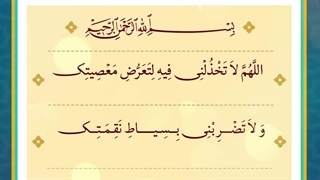 بِسْمِ اللهِ الرَّحْمٰنِ الرَّحِيْمِ
اللَّهُمَّ لاَ تَخْذُلْنِی فِیهِ لِتَعَرُّضِ مَعْصِیَتِک
وَ لاَ تَضْرِبْنِی بِسِیاطِ نَقِمَتِک